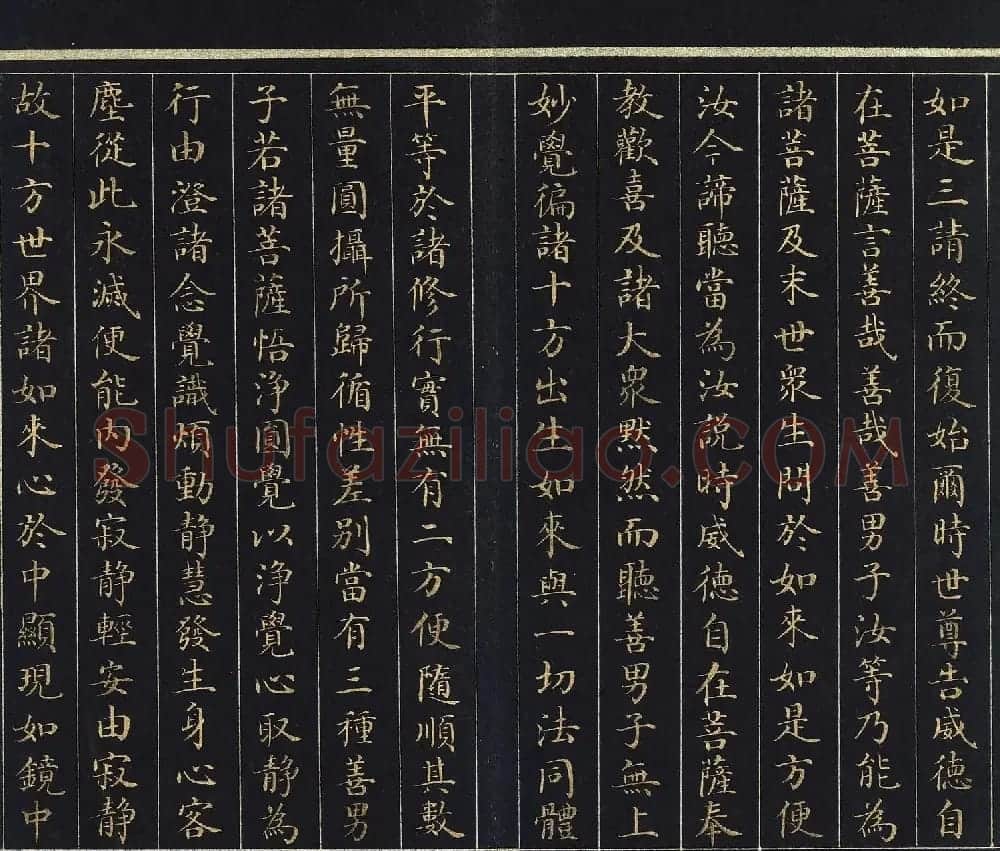 如是三請終而復始爾時世尊告威德自
在菩薩言善哉善哉善男子汝等乃能為
諸菩薩及末世眾生問於如來如是方便
汝今諦聽當為汝說時威德自在菩薩奉
教歡喜及諸大眾默然而聽善男子無上
妙覺徧諸十方出生如來與一切法同體
平等於諸修行實無有二方便隨順其數
無量圓攝所歸循性差別當有三種善男
子若諸菩薩悟淨圓覺以淨覺心取靜為
行由澄諸念覺識煩動靜慧發生身心客
塵從此永滅便能內發寂靜輕安由寂靜
故十方世界諸如來心於中顯現如鏡中
Shufaziliao.COM